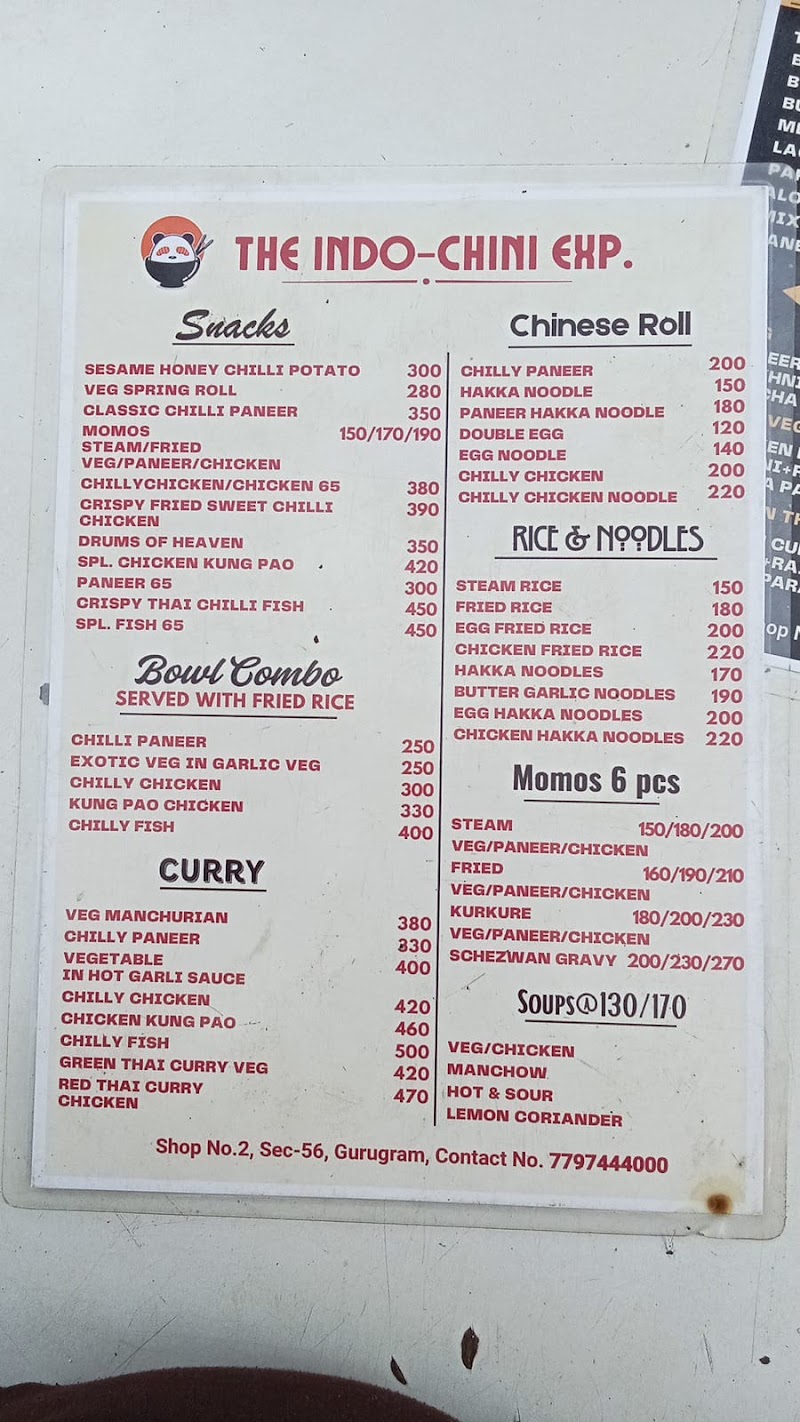 THE INDO-CHINI EXP.
Snacks
SESAME HONEY CHILLI POTATO 300
VEG SPRING ROLL 280
CLASSIC CHILLI PANEER 350
MOMOS 150/170/190
STEAM/FRIED
VEG/PANEER/CHICKEN
CHILLYCHICKEN/CHICKEN 65 380
CRISPY FRIED SWEET CHILLI 390
CHICKEN
DRUMS OF HEAVEN 350
SPL. CHICKEN KUNG PAO 420
PANEER 65 300
CRISPY THAI CHILLI FISH 450
SPL. FISH 65 450
Bowl Combo
SERVED WITH FRIED RICE
CHILLI PANEER 250
EXOTIC VEG IN GARLIC VEG 250
CHILLY CHICKEN 300
KUNG PAO CHICKEN 330
CHILLY FISH 400
CURRY
VEG MANCHURIAN 380
CHILLY PANEER 330
VEGETABLE 400
IN HOT GARLI SAUCE
CHILLY CHICKEN 420
CHICKEN KUNG PAO 460
CHILLY FISH 500
GREEN THAI CURRY VEG 420
RED THAI CURRY 470
CHICKEN
Chinese Roll
CHILLY PANEER 200
HAKKA NOODLE 150
PANEER HAKKA NOODLE 180
DOUBLE EGG 120
EGG NOODLE 140
CHILLY CHICKEN 200
CHILLY CHICKEN NOODLE 220
RICE & NOODLES
STEAM RICE 150
FRIED RICE 180
EGG FRIED RICE 200
CHICKEN FRIED RICE 220
HAKKA NOODLES 170
BUTTER GARLIC NOODLES 190
EGG HAKKA NOODLES 200
CHICKEN HAKKA NOODLES 220
Momos 6 pcs
STEAM 150/180/200
VEG/PANEER/CHICKEN
FRIED 160/190/210
VEG/PANEER/CHICKEN
KURKURE 180/200/230
VEG/PANEER/CHICKEN
SCHEZWAN GRAVY 200/230/270
Soups@130/170
VEG/CHICKEN
MANCHOW
HOT & SOUR
LEMON CORIANDER
Shop No.2, Sec-56, Gurugram, Contact No. 7797444000